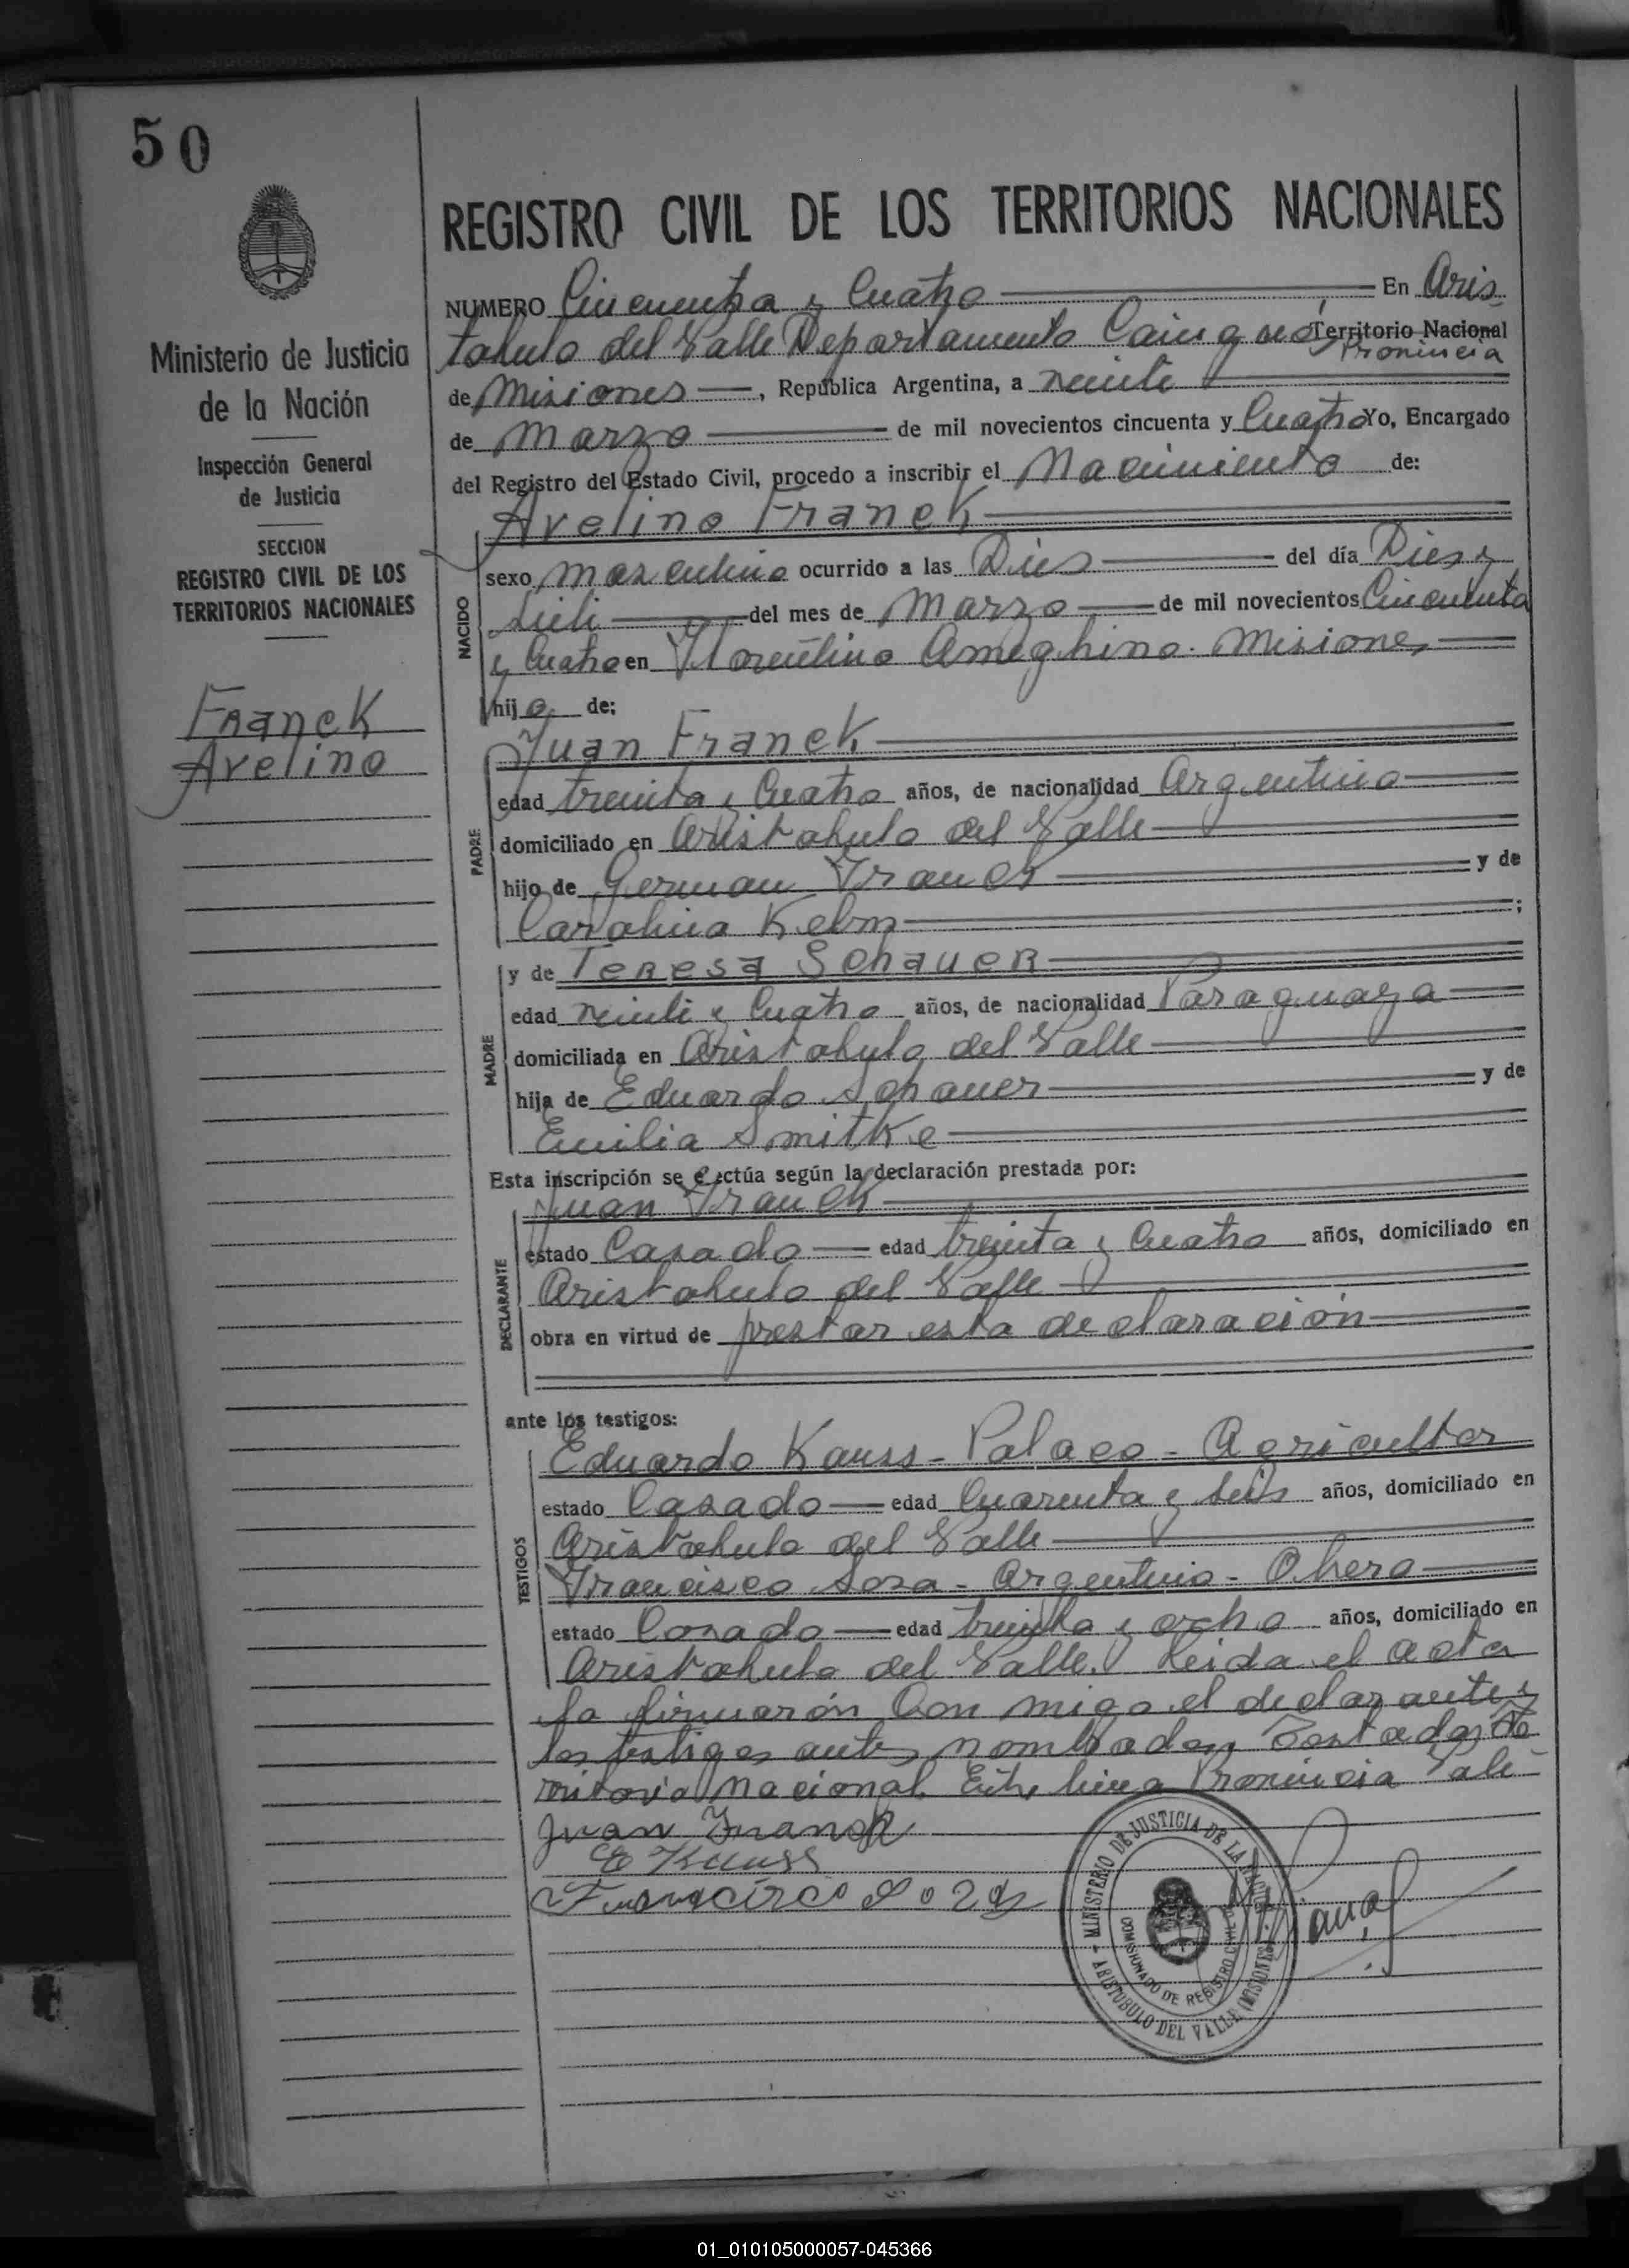 50
REGISTRO CIVIL DE LOS TERRITORIOS NACIONALES
Ministerio de Justicia
de la Nación
Inspección General
de Justicia
SECCION
REGISTRO CIVIL DE LOS
TERRITORIOS NACIONALES
Franck
Avelino
NUMERO Cincuenta y Cuatro En Aris
tobulo del Valle Departamento Cainguás Territorio Nacional
Provincia
de Misiones, República Argentina, a veinte
de Marzo de mil novecientos cincuenta y Cuatro Yo, Encargado
del Registro del Estado Civil, procedo a inscribir el Nacimiento de:
Avelino Franck
NACIDO
sexo masculino ocurrido a las Dies del día Dies y
siete del mes de Marzo de mil novecientos Cincuenta
y Cuatro en Florentino Ameghino. Misiones
hijo de:
Juan Franck
PADRE
edad treinta y Cuatro años, de nacionalidad Argentino
domiciliado en Aristobulo del Valle
hijo de German Franck y de
Carolina Kelm;
MADRE
y de Teresa Schauer
edad veinte y Cuatro años, de nacionalidad Paraguaya
domiciliada en Aristobulo del Valle
hija de Eduardo Schauer y de
Emilia Smitke
Esta inscripción se efectúa según la declaración prestada por:
DECLARANTE
Juan Franck
estado Casado edad treinta y Cuatro años, domiciliado en
Aristobulo del Valle
obra en virtud de prestar esta declaración
ante los testigos:
TESTIGOS
Eduardo Kauss - Polaco - Agricultor
estado Casado edad Cuarenta y seis años, domiciliado en
Aristobulo del Valle
Francisco Sosa - Argentino - Obrero
estado Casado edad treinta y ocho años, domiciliado en
Aristobulo del Valle. Leida el acta
la firmarón Con migo el declarante y
los testigos antes nombados, Testado: Te
rritorio Nacional. Entre linea Provincia Vale
Juan Franck
E Kauss
Francisco Sosa
MINISTERIO DE JUSTICIA DE LA NACION
COMISIONADO DE REGISTRO CIVIL
ARISTOBULO DEL VALLE (MISIONES)
01_010105000057-045366